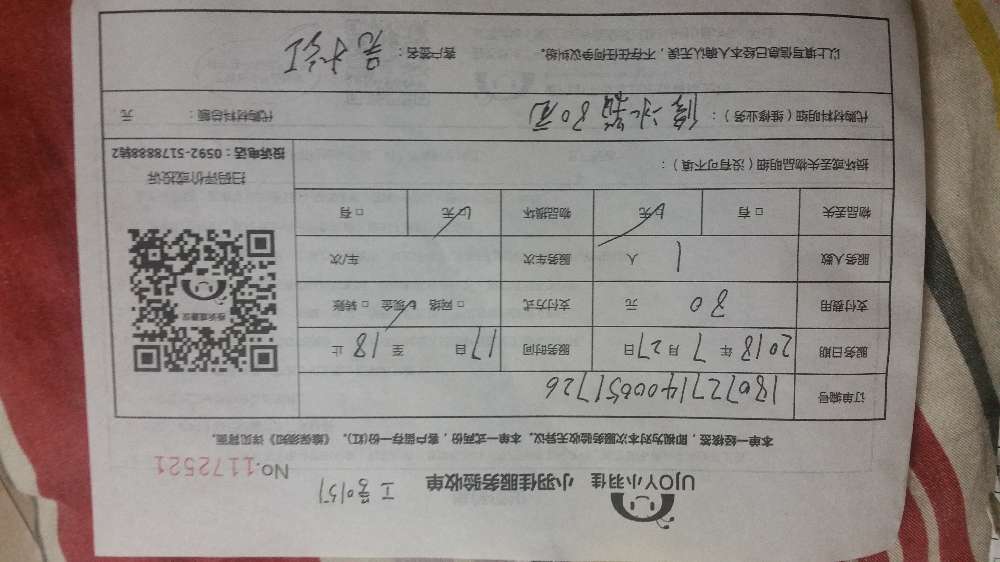 UJOY小羽佳 小羽佳服务验收单 工号0151
No.1172521
本单一经核签，即视为对本次服务验收无异议。本单一式两份，客户留存一份(红)。《维保须知》详见背面。
订单编号 180727714000651726
服务日期 2018 年 7 月 27 日 服务时间 17 自 至 18 止
支付费用 80 元 支付方式 □ 网络 ☑ 现金 □ 转账
服务人数 1 人 服务车次 车/次
物品丢失 □ 有 ☑ 无 物品损坏 ☑ 无 □ 有
扫码评价或投诉
投诉电话：0592-5178888转2
损坏或丢失物品明细（没有可不填）：
代购材料明细（维修业务）： 修水箱80元 代购材料总额： 元
以上填写信息已经本人确认无误，不存在任何争议纠纷。 客户签名：